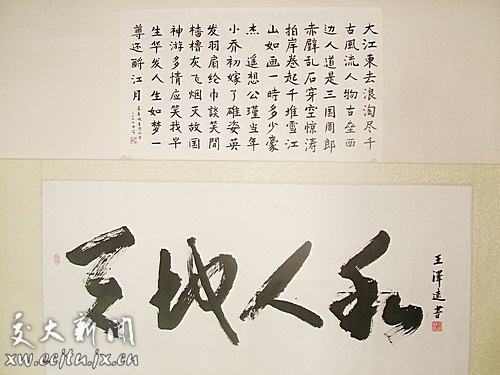 大江東去浪淘尽千
古風流人物古垒西
边人道是三国周郎
赤壁乱石穿空惊涛
拍岸卷起千堆雪江
山如画一時多少豪
杰 遥想公瑾当年
小乔初嫁了雄姿英
发羽扇纶巾談笑間
樯橹灰飞烟灭故国
神游多情应笑我早
生华发人生如梦一
尊还酹江月
天地人和
王澤遠書
交大新闻
xw.ecjtu.jx.cn